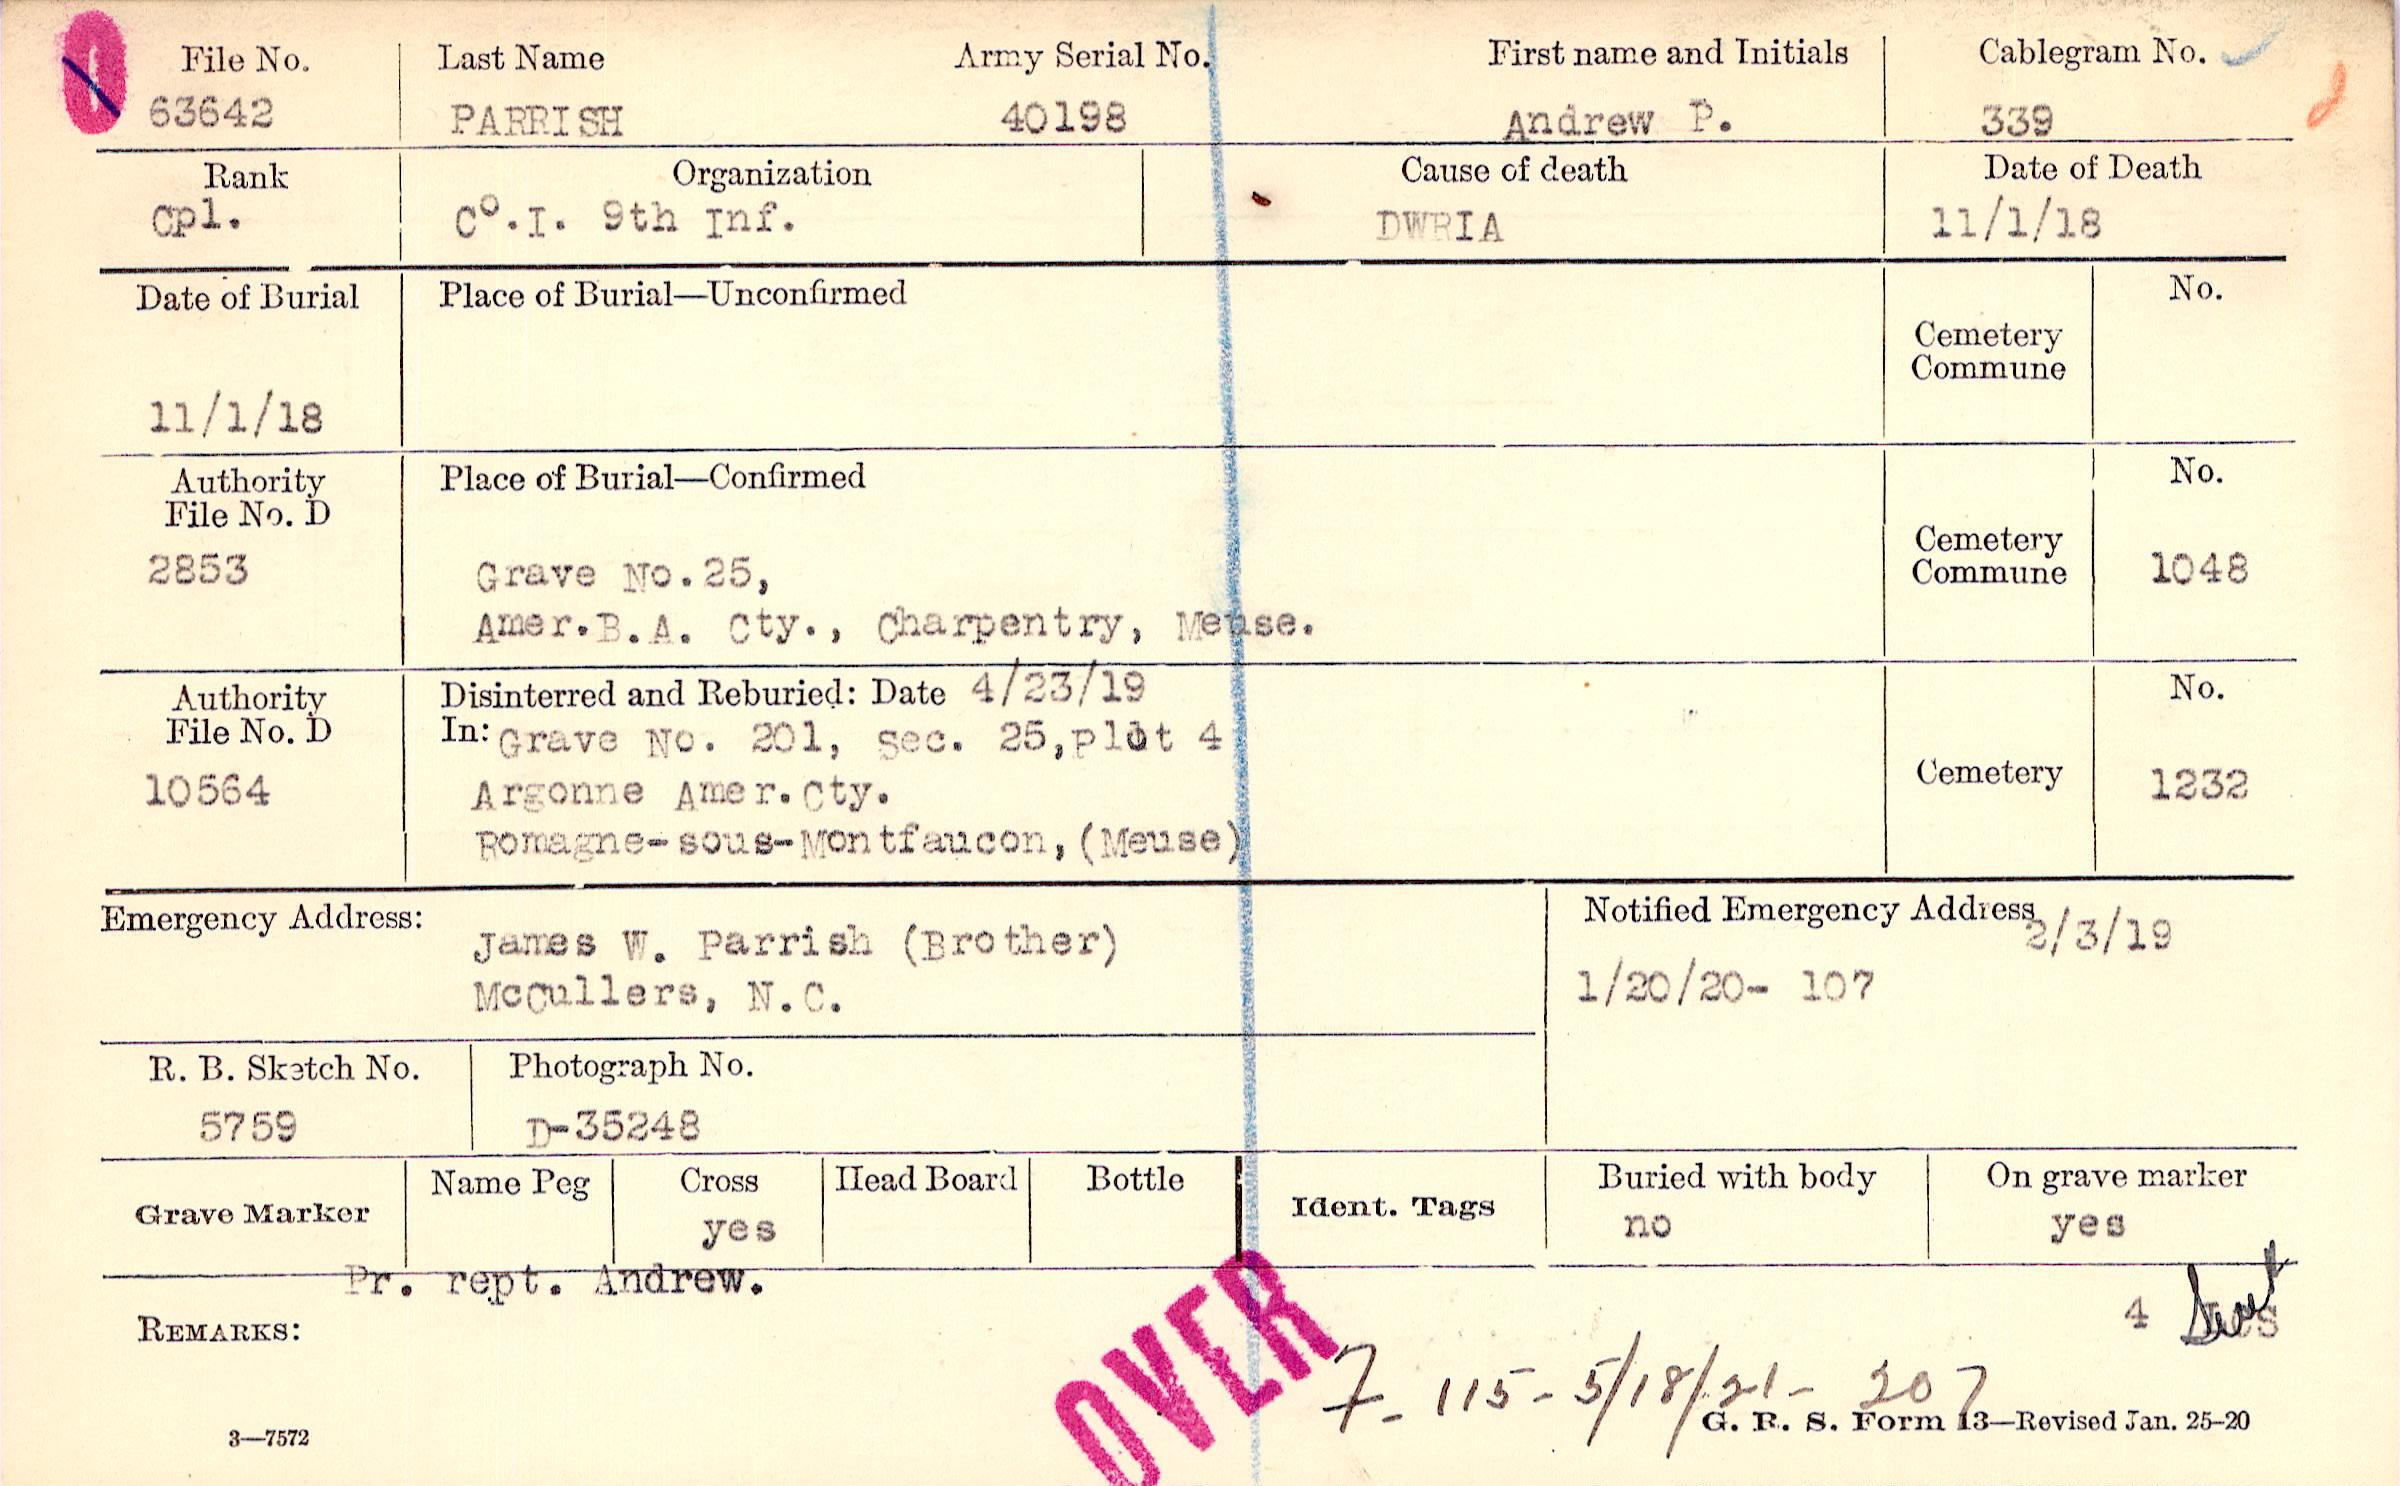 File No. Last Name Army Serial No. First name and Initials Cablegram No.
63642 PARRISH 40198 Andrew P. 339
Rank Organization Cause of death Date of Death
Cpl. Co.I. 9th Inf. DWRIA 11/1/18
Date of Burial Place of Burial—Unconfirmed No.
Cemetery
Commune
11/1/18
Authority Place of Burial—Confirmed No.
File No. D
2853 Grave No.25, Cemetery
Commune 1048
Amer.B.A. Cty., Charpentry, Meuse.
Authority Disinterred and Reburied: Date 4/23/19 No.
File No. D In: Grave No. 201, Sec. 25, Plot 4
10564 Argonne Amer.Cty. Cemetery 1232
Romagne-sous-Montfaucon, (Meuse)
Emergency Address: Notified Emergency Address 2/3/19
James W. Parrish (Brother)
McCullers, N.C. 1/20/20- 107
R. B. Sketch No. Photograph No.
5759 D-35248
Grave Marker Name Peg Cross Head Board Bottle Ident. Tags Buried with body On grave marker
yes no yes
Pr. rept. Andrew.
REMARKS: 4
OVER
7- 115- 5/18/21- 207
3—7572 G. R. S. Form 13—Revised Jan. 25-20